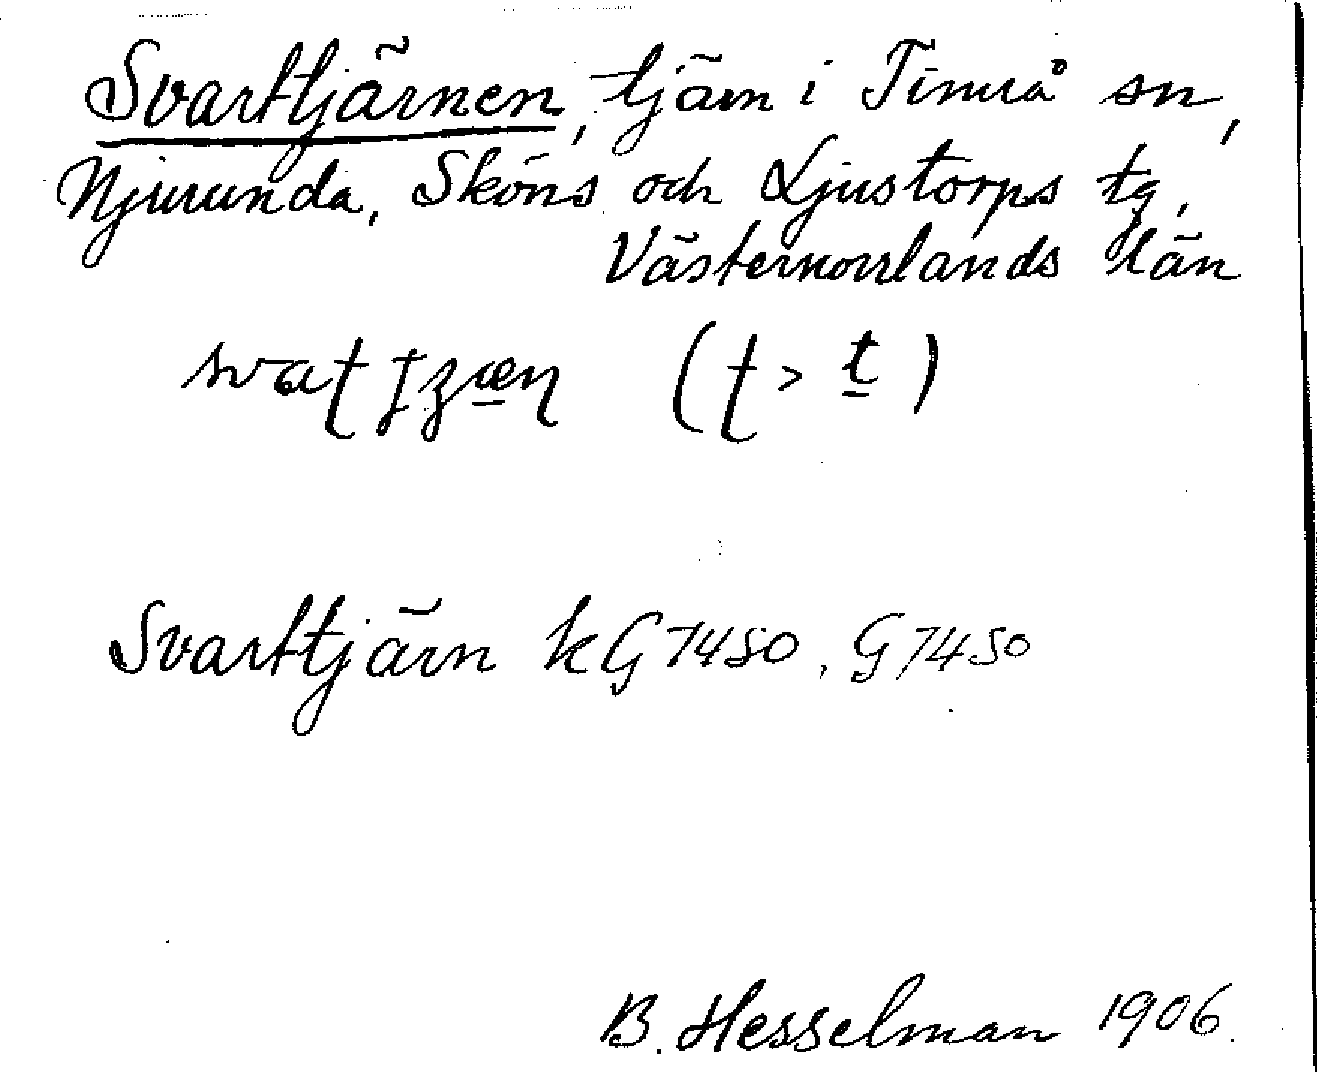 Svarttjärnen, tjärn i Timrå sn,
Njurunda, Sköns och Ljustorps tg,
Västernorrlands län
(t > t)
Svarttjärn kG7450, G7450
B. Hesselman 1906.